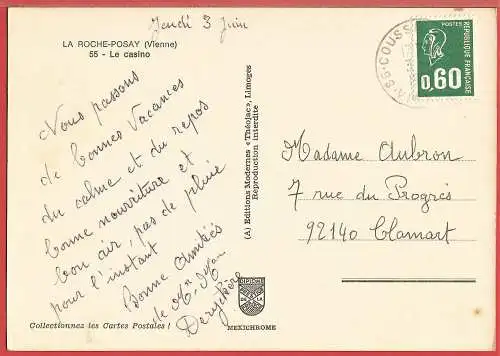 Jeudi 3 Juin
LA ROCHE-POSAY (Vienne)
55 - Le casino
Nous passons
de bonnes vacances
du calme et du repos
bonne nourriture et
bon air, pas de pluie
pour l'instant
Bonne Amitiés
de Mr. Mme
Deryckère
Collectionnez les Cartes Postales !
(A) Editions Modernes «Théojac», Limoges
Reproduction interdite
MEXICHROME
COUSS
REPUBLIQUE FRANÇAISE
POSTES
0,60
Madame Aubron
7 rue du Progrès
92140 Clamart